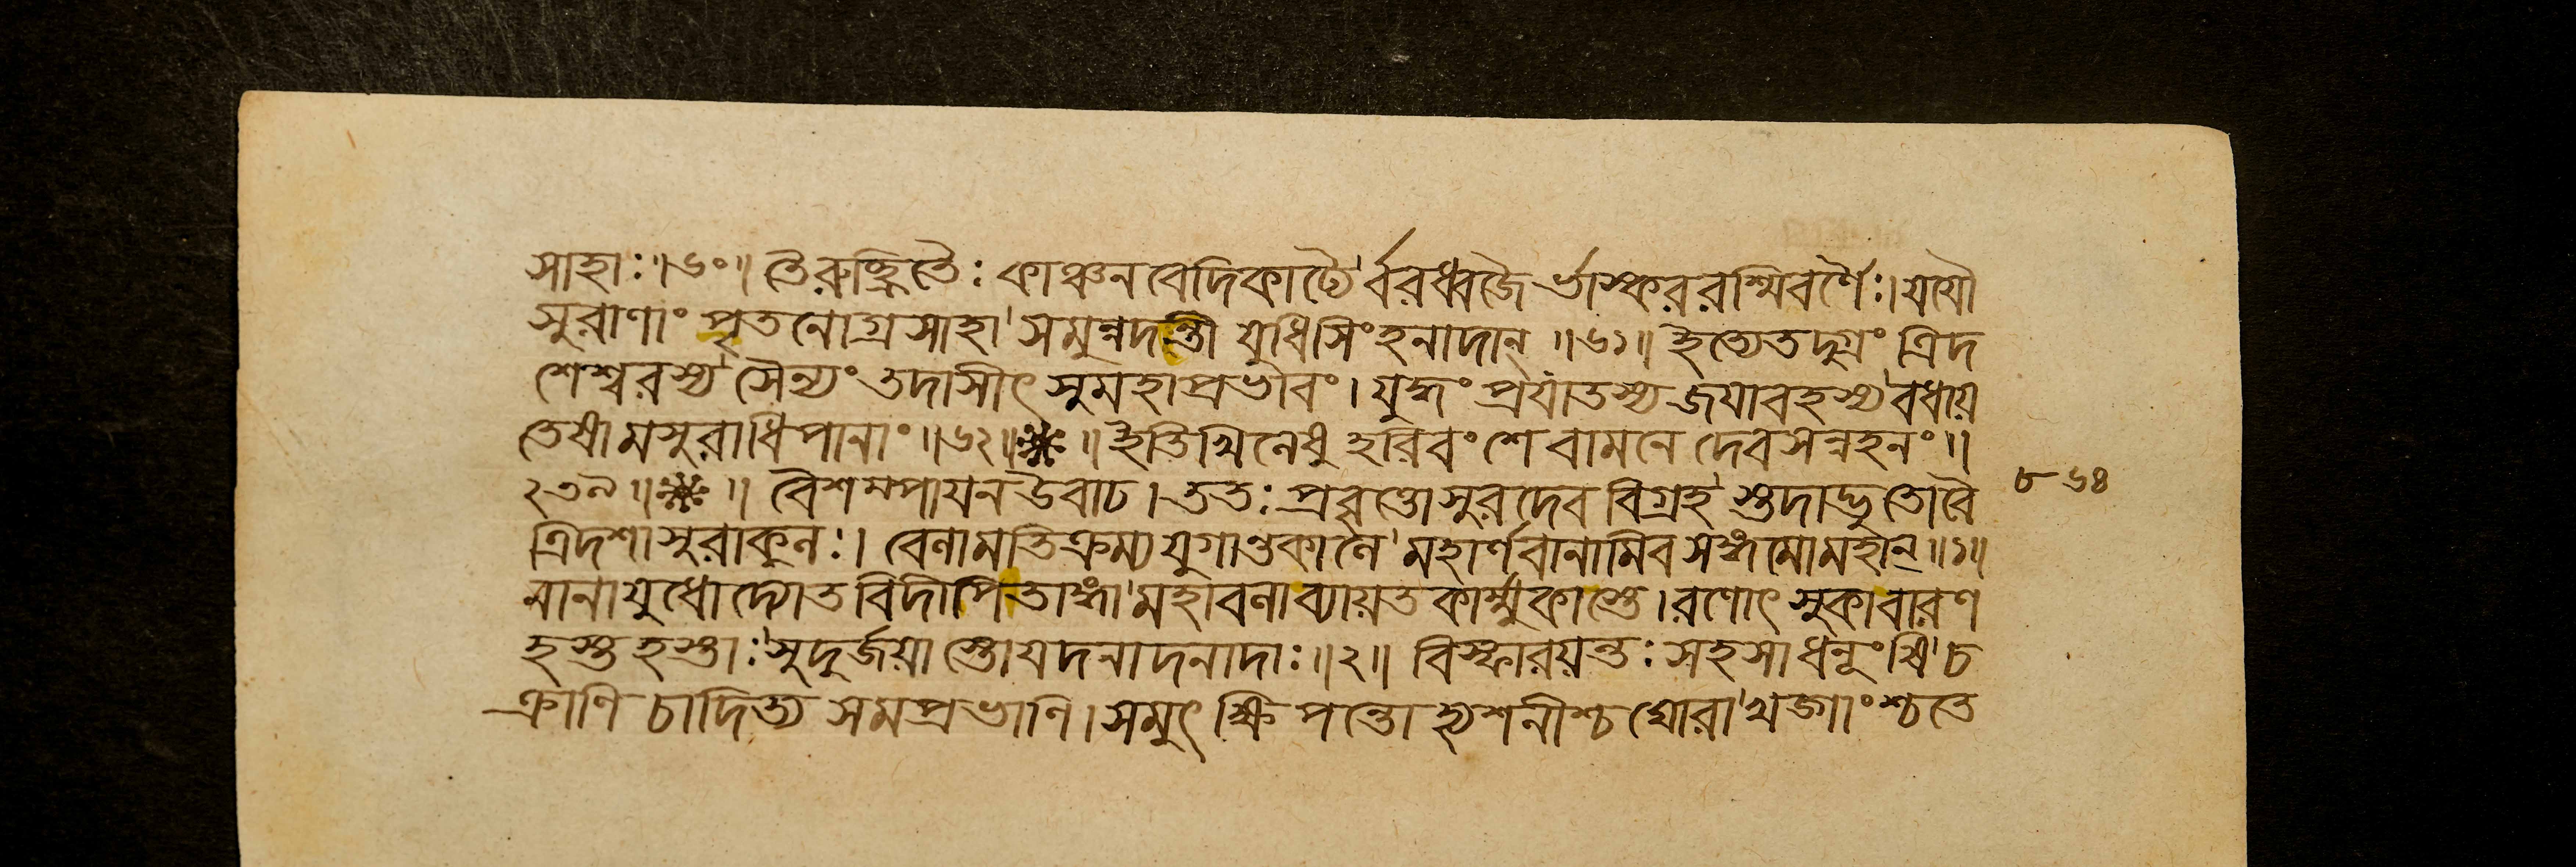 সাহাঃ॥৬০॥ তৈরুচ্ছ্রিতৈঃ কাঞ্চনবেদিকাঢ্যৈর্ব্বরধ্বজৈর্ভাস্কররশ্মিবর্ণৈঃ।যযৌ
সুরাণাং পৃতনোগ্রসাহা'সমুন্নদন্তী যুধিসিংহনাদান্ ॥৬১॥ ইত্যেতদুগ্রং ত্রিদ
শেশ্বরস্য'সৈন্যং তদাসীৎ সুমহাপ্রভাবং। যুদ্ধং প্রযাতস্য জযাবহস্য'বধায়
তেষামসুরাধিপানাং॥৬২॥ ॥ ইতিখিলেষু হরিবংশে বামনে দেবসন্নহনং॥
২৩৯॥ ॥ বৈশম্পাযন উবাচ।ততঃ প্রবৃত্তোসুরদেববিগ্রহ'স্তদাদ্ভুতোবৈ
ত্রিদশাসুরাকুলঃ। বেলামতিক্রম্য যুগান্তকালে'মহার্ণবানামিব সঙ্গমোমহান্॥১॥
নানাযুধোদ্যোতবিদীপিতাঙ্গা'মহাবলাব্যায়তকার্ম্মুকাস্তে।রণোৎসুকাবারণ
হস্তহস্তাঃ'সুদুর্জয়াস্তোযদনাদনাদাঃ॥২॥ বিস্ফারয়ন্তঃ সহসা ধনূংষি'চ
ক্রাণি চাদিত্য সমপ্রভাণি।সমুৎক্ষিপন্তো হ্যশনীশ্চ ঘোরা'খড্গাংশ্চতে
৮৬৪